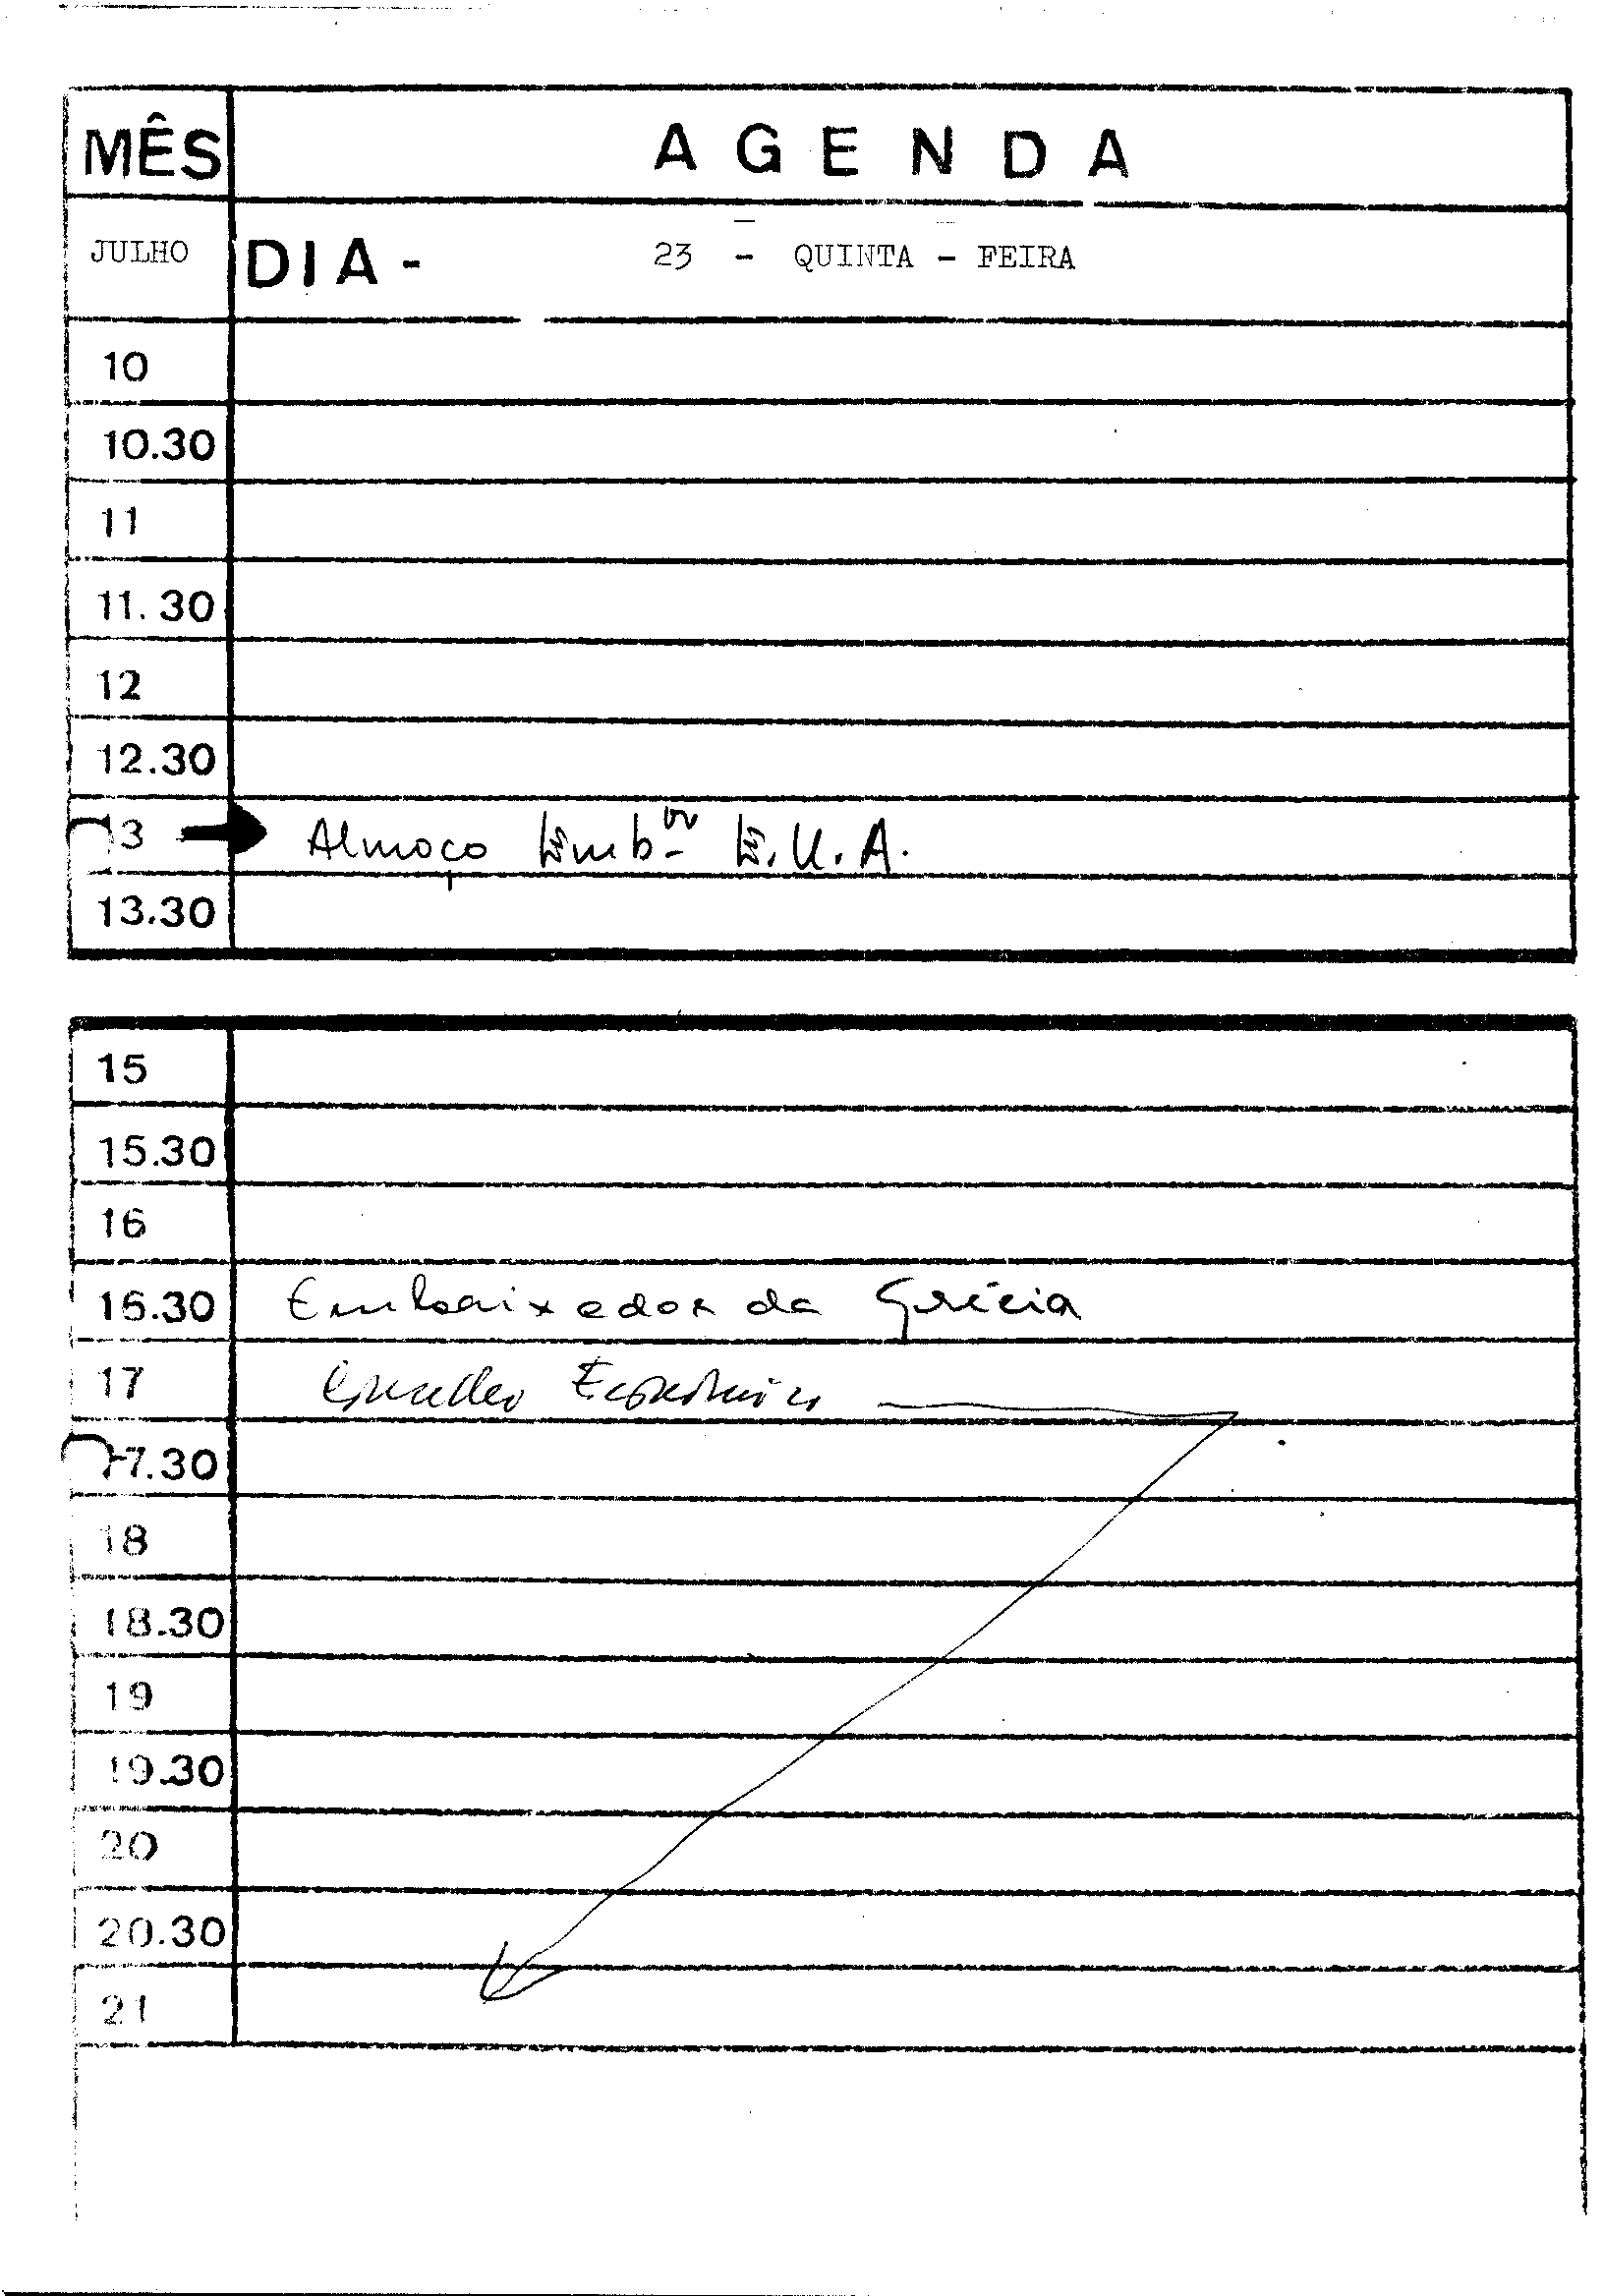 MÊS AGENDA
JULHO DIA - 23 - QUINTA - FEIRA
10
10.30
11
11.30
12
12.30
13 Almoço Emb.or E.U.A.
13.30
15
15.30
16
16.30 Embaixador da Grécia
17 Conselho Económico
17.30
18
18.30
19
19.30
20
20.30
21